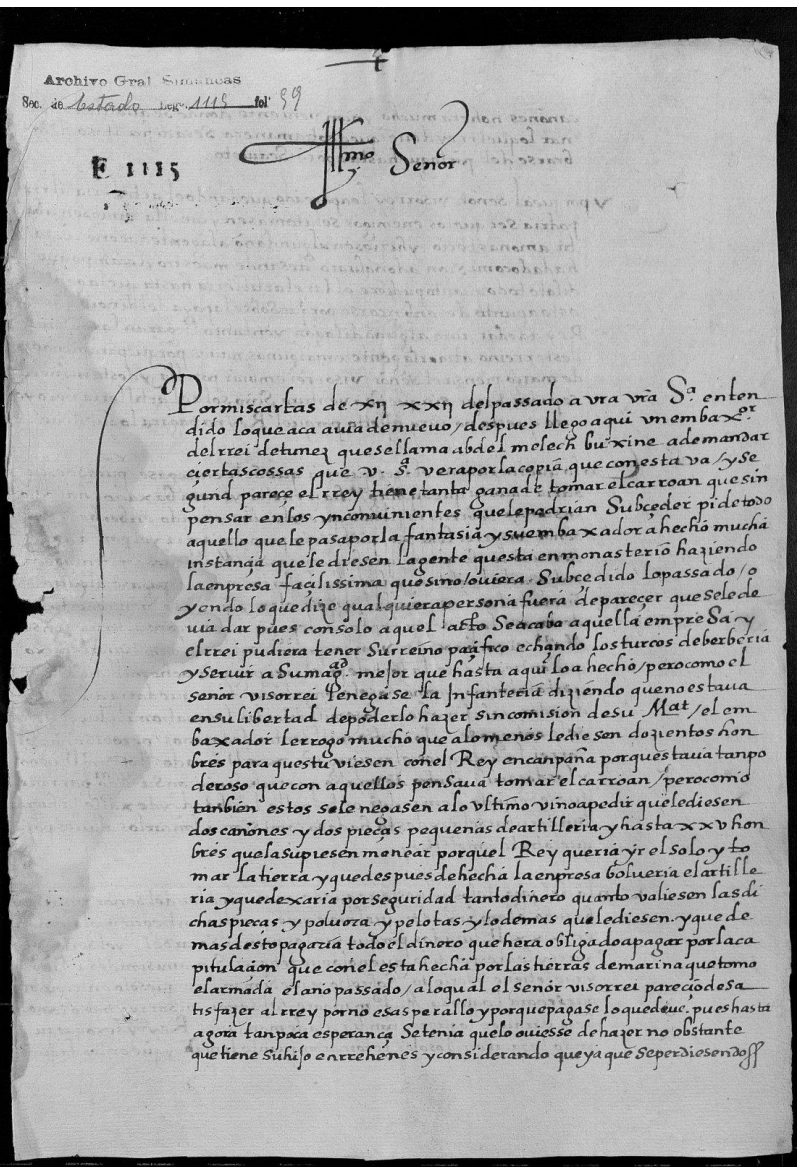 Archivo Gral Simancas
Sec. de Estado Leg. 1115 fol 59
Illmo Señor
E 1115
Por mis cartas de xij xxij del passado a vra vra Sª. enten
dido lo que aca avia de nuevo / despues llego aqui vn embaxor
del rrei de tunez que se llama abdel melech buxine a demandar
ciertas cossas que v. sª. vera por la copia que con esta va / y se
gund pareçe el rrey tiene tanta gana de tomar el carroan que sin
pensar en los ynconuinientes que le podrian Subçeder pide todo
aquello que le pasa por la fantasia y su embaxador a hecho mucha
instançia que le diesen la gente questa en monasterio haziendo
la enpresa façilissima que si no / oviera Subcedido lo passado / o
yendo lo que dize qualquiera persona fuera de pareçer que se le de
via dar pues con solo aquel acto Se acaba aquella empresa y
el rrei pudiera tener Su rreino paçifico echando los turcos de berberia
y servir a Su magad. mejor que hasta aqui lo a hecho / pero como el
señor visorrei le negase la Infanteria diziendo que no estaua
en su libertad de poderlo hazer sin comision de su Mat / el em
baxador le rrogo mucho que alomenos le diesen dozientos hon
bres para questuviesen con el Rey en canpaña porque estava tan po
deroso que con aquellos pensava tomar el carroan / pero como
tanbien estos se le negasen a lo vltimo vino a pedir que le diesen
dos cañones y dos pieças pequeñas de artilleria y hasta xxv hon
bres que la supiesen menear porquel Rey queria yr el solo y to
mar la tierra y que despues de hecha la enpresa bolueria el artille
ria y que dexaria por seguridad tanto dinero quanto valiesen las di
chas pieças y polvora y pelotas y lo demas que le diesen. y que de
mas desto pagaria todo el dinero que hera obligado a pagar por la ca
pitulaçion que con el esta hecha por las tierras de marina que tomo
el armada el año passado / a lo qual el señor visorrei pareçio de sa
tisfazer al rrey por no esasperallo y porque pagase lo que deve. pues hasta
agora tan poca esperança Se tenia que lo oviesse de hazer no obstante
que tiene su hijo en rrehenes y considerando que ya que se perdiesen dos